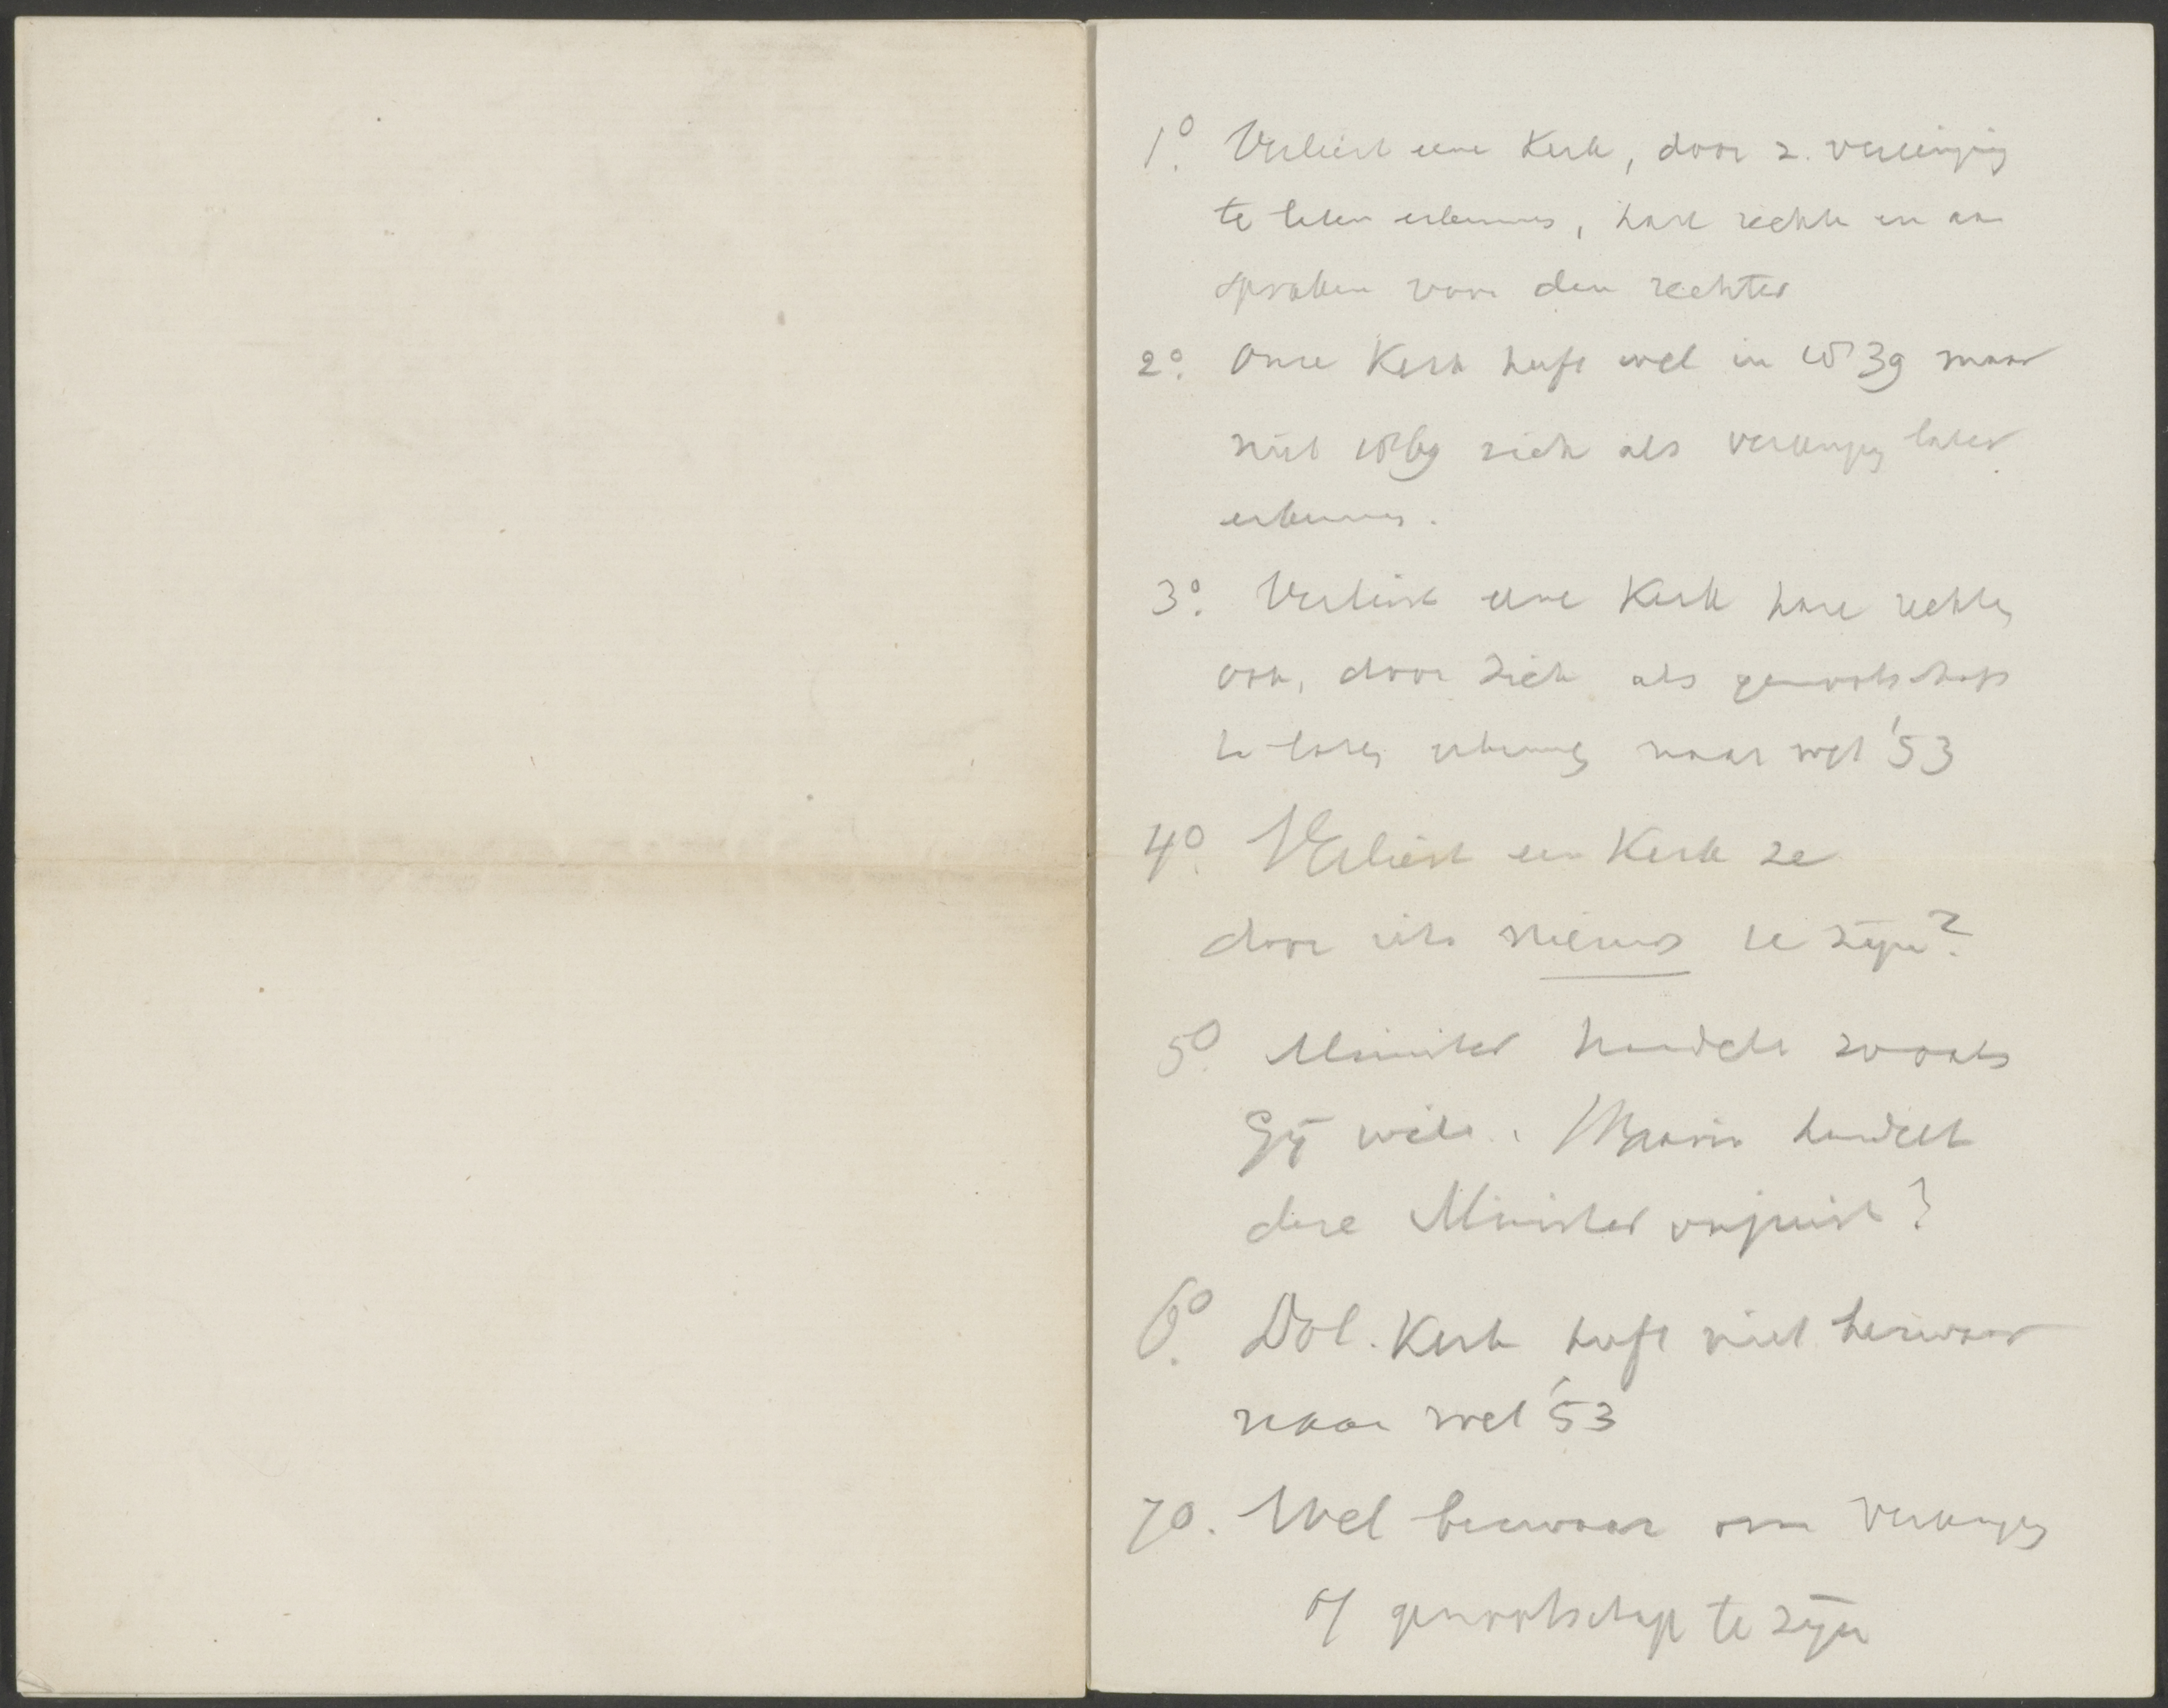 1º. Verliest eene Kerk, door z. vereeniging
te laten erkennen, hare rechten en aan
spraken voor den rechter
2º. Onze Kerk heeft wel in 1839 maar
niet 1869 zich als vereeniging laten
erkennen.
3º. Verliest eene Kerk hare rechten
ook, door zich als genootschap
te laten erkennen naar wet '53
4º. Verliest een Kerk ze
door iets nieuws te zijn?
5º. Minister handelt zooals
Gij wilt. Waarin handelt
deze Minister onjuist?
6º. Dol. Kerk heeft niet bezwaar
naar wet '53
7º. Wel bezwaar om vereeniging
of genootschap te zijn